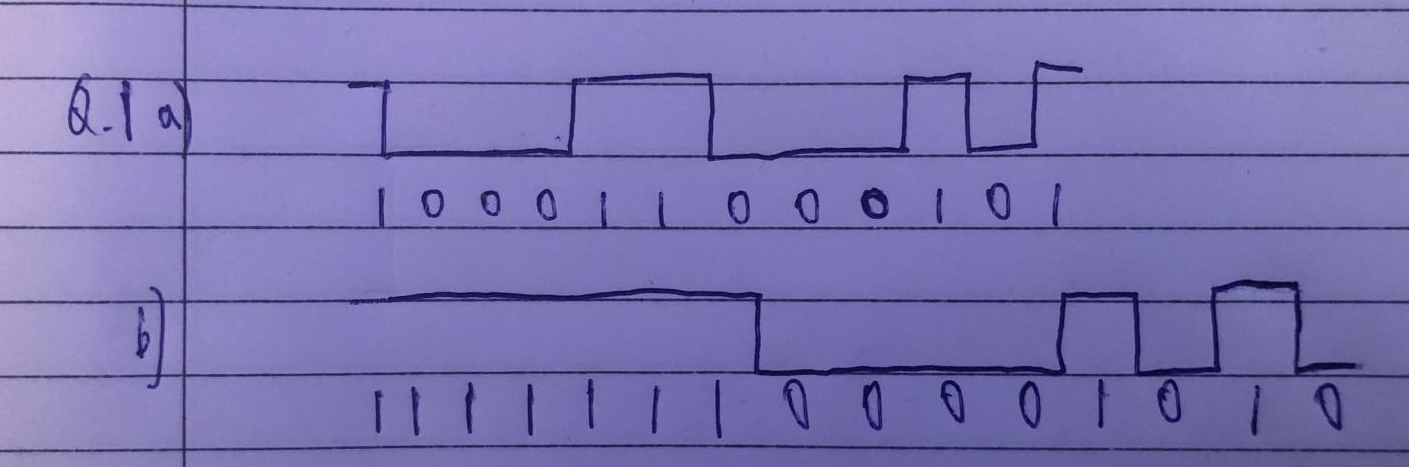 Q.1 a)
1 0 0 0 1 1 0 0 0 1 0 1
b)
1 1 1 1 1 1 1 0 0 0 0 1 0 1 0